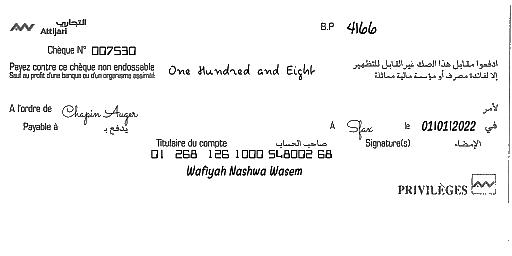 التجاري
Attijari
B.P 4166
Chèque N° 007530
Payez contre ce chèque non endossable
Sauf au profit d'une banque ou d'un organisme assimilé
One Hundred and Eight
ادفعوا مقابل هذا الصك غير القابل للتظهير
إلا لفائدة مصرف أو مؤسسة مالية مماثلة
A l'ordre de Chapin Auger لأمر
Payable à يدفع بـ
A Sfax le 01/01/2022 في
Titulaire du compte صاحب الحساب Signature(s) الإمضاء
01 268 126 1000 548002 68
Wafiyah Nashwa Wasem
PRIVILÈGES